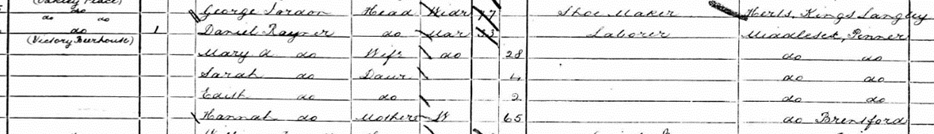 do do George Head Widr 77 Shoe Maker Herts. Kings Langley
do 1 Daniel Rayner do Mar 33 Laborer Middlesex, Pinner
(Victory Beerhouse) Mary A do Wife do 28 do do
Sarah do Daur 4 do do
Edith do do 2 do do
Hannah do Mother W 65 do Brentford